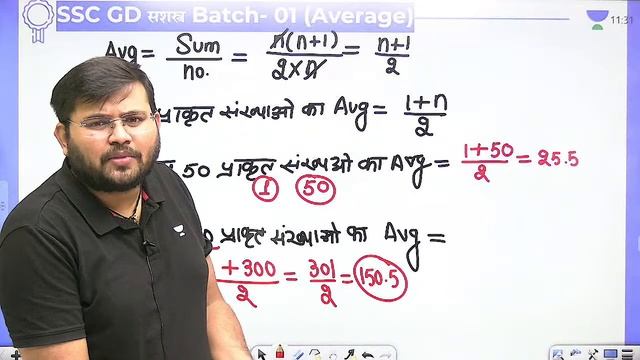 SSC GD सशस्त्र Batch- 01 (Average)
11:31
Avg = Sum/no. = n(n+1)/2×n = n+1/2
प्राकृत संख्याओ का Avg = 1+n/2
50 प्राकृत संख्याओ का Avg = 1+50/2 = 25.5
1 50
प्राकृत संख्याओ का Avg =
+300/2 = 301/2 = 150.5